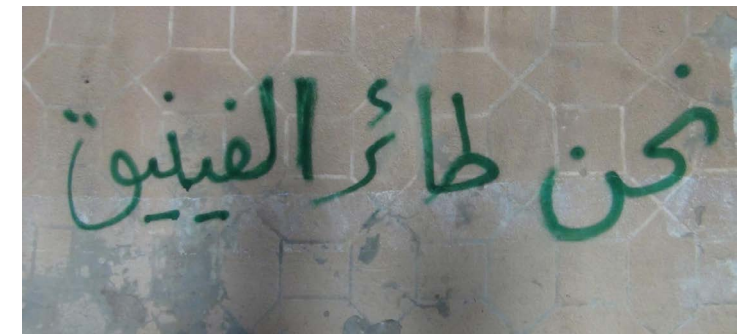 نحن طائر الفينيق